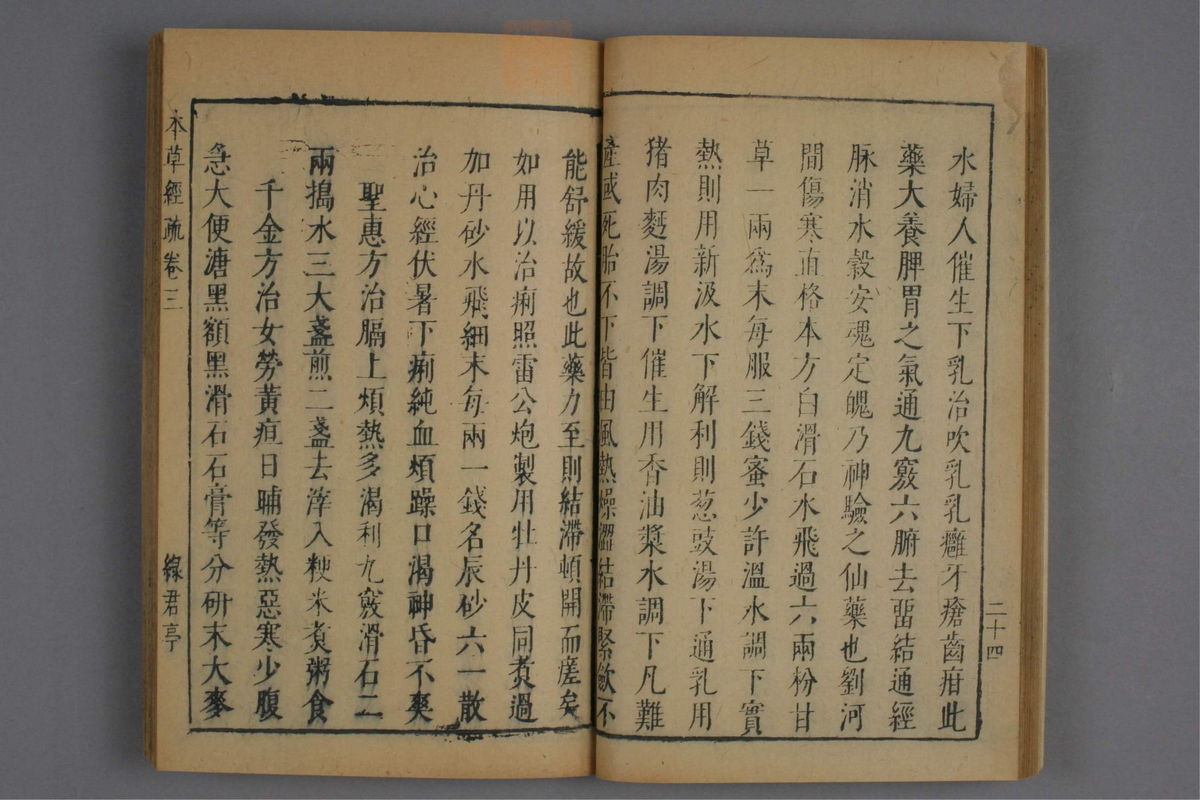 水婦人催生下乳治吹乳乳癰牙瘡齒疳此
藥大養脾胃之氣通九竅六腑去畱結通經
脉消水榖安魂定魄乃神驗之仙藥也劉河
間傷寒直格本方白滑石水飛過六兩粉甘
草一兩爲末每服三錢蜜少許溫水調下實
熱則用新汲水下解利則葱豉湯下通乳用
猪肉麪湯調下催生用香油漿水調下凡難
產或死胎不下皆由風熱燥澀結滯緊斂不
能舒緩故也此藥力至則結滯頓開而瘥矣
如用以治痢照雷公炮製用牡丹皮同煑過
加丹砂水飛細末每兩一錢名辰砂六一散
治心經伏暑下痢純血煩躁口渴神昏不爽
聖惠方治膈上煩熱多渴利九竅滑石二
兩搗水三大盞煎二盞去滓入粳米煑粥食
千金方治女勞黃疸日晡發熱惡寒少腹
急大便溏黑額黑滑石石膏等分研末大麥
本草經疏卷三
綠君亭
二十四